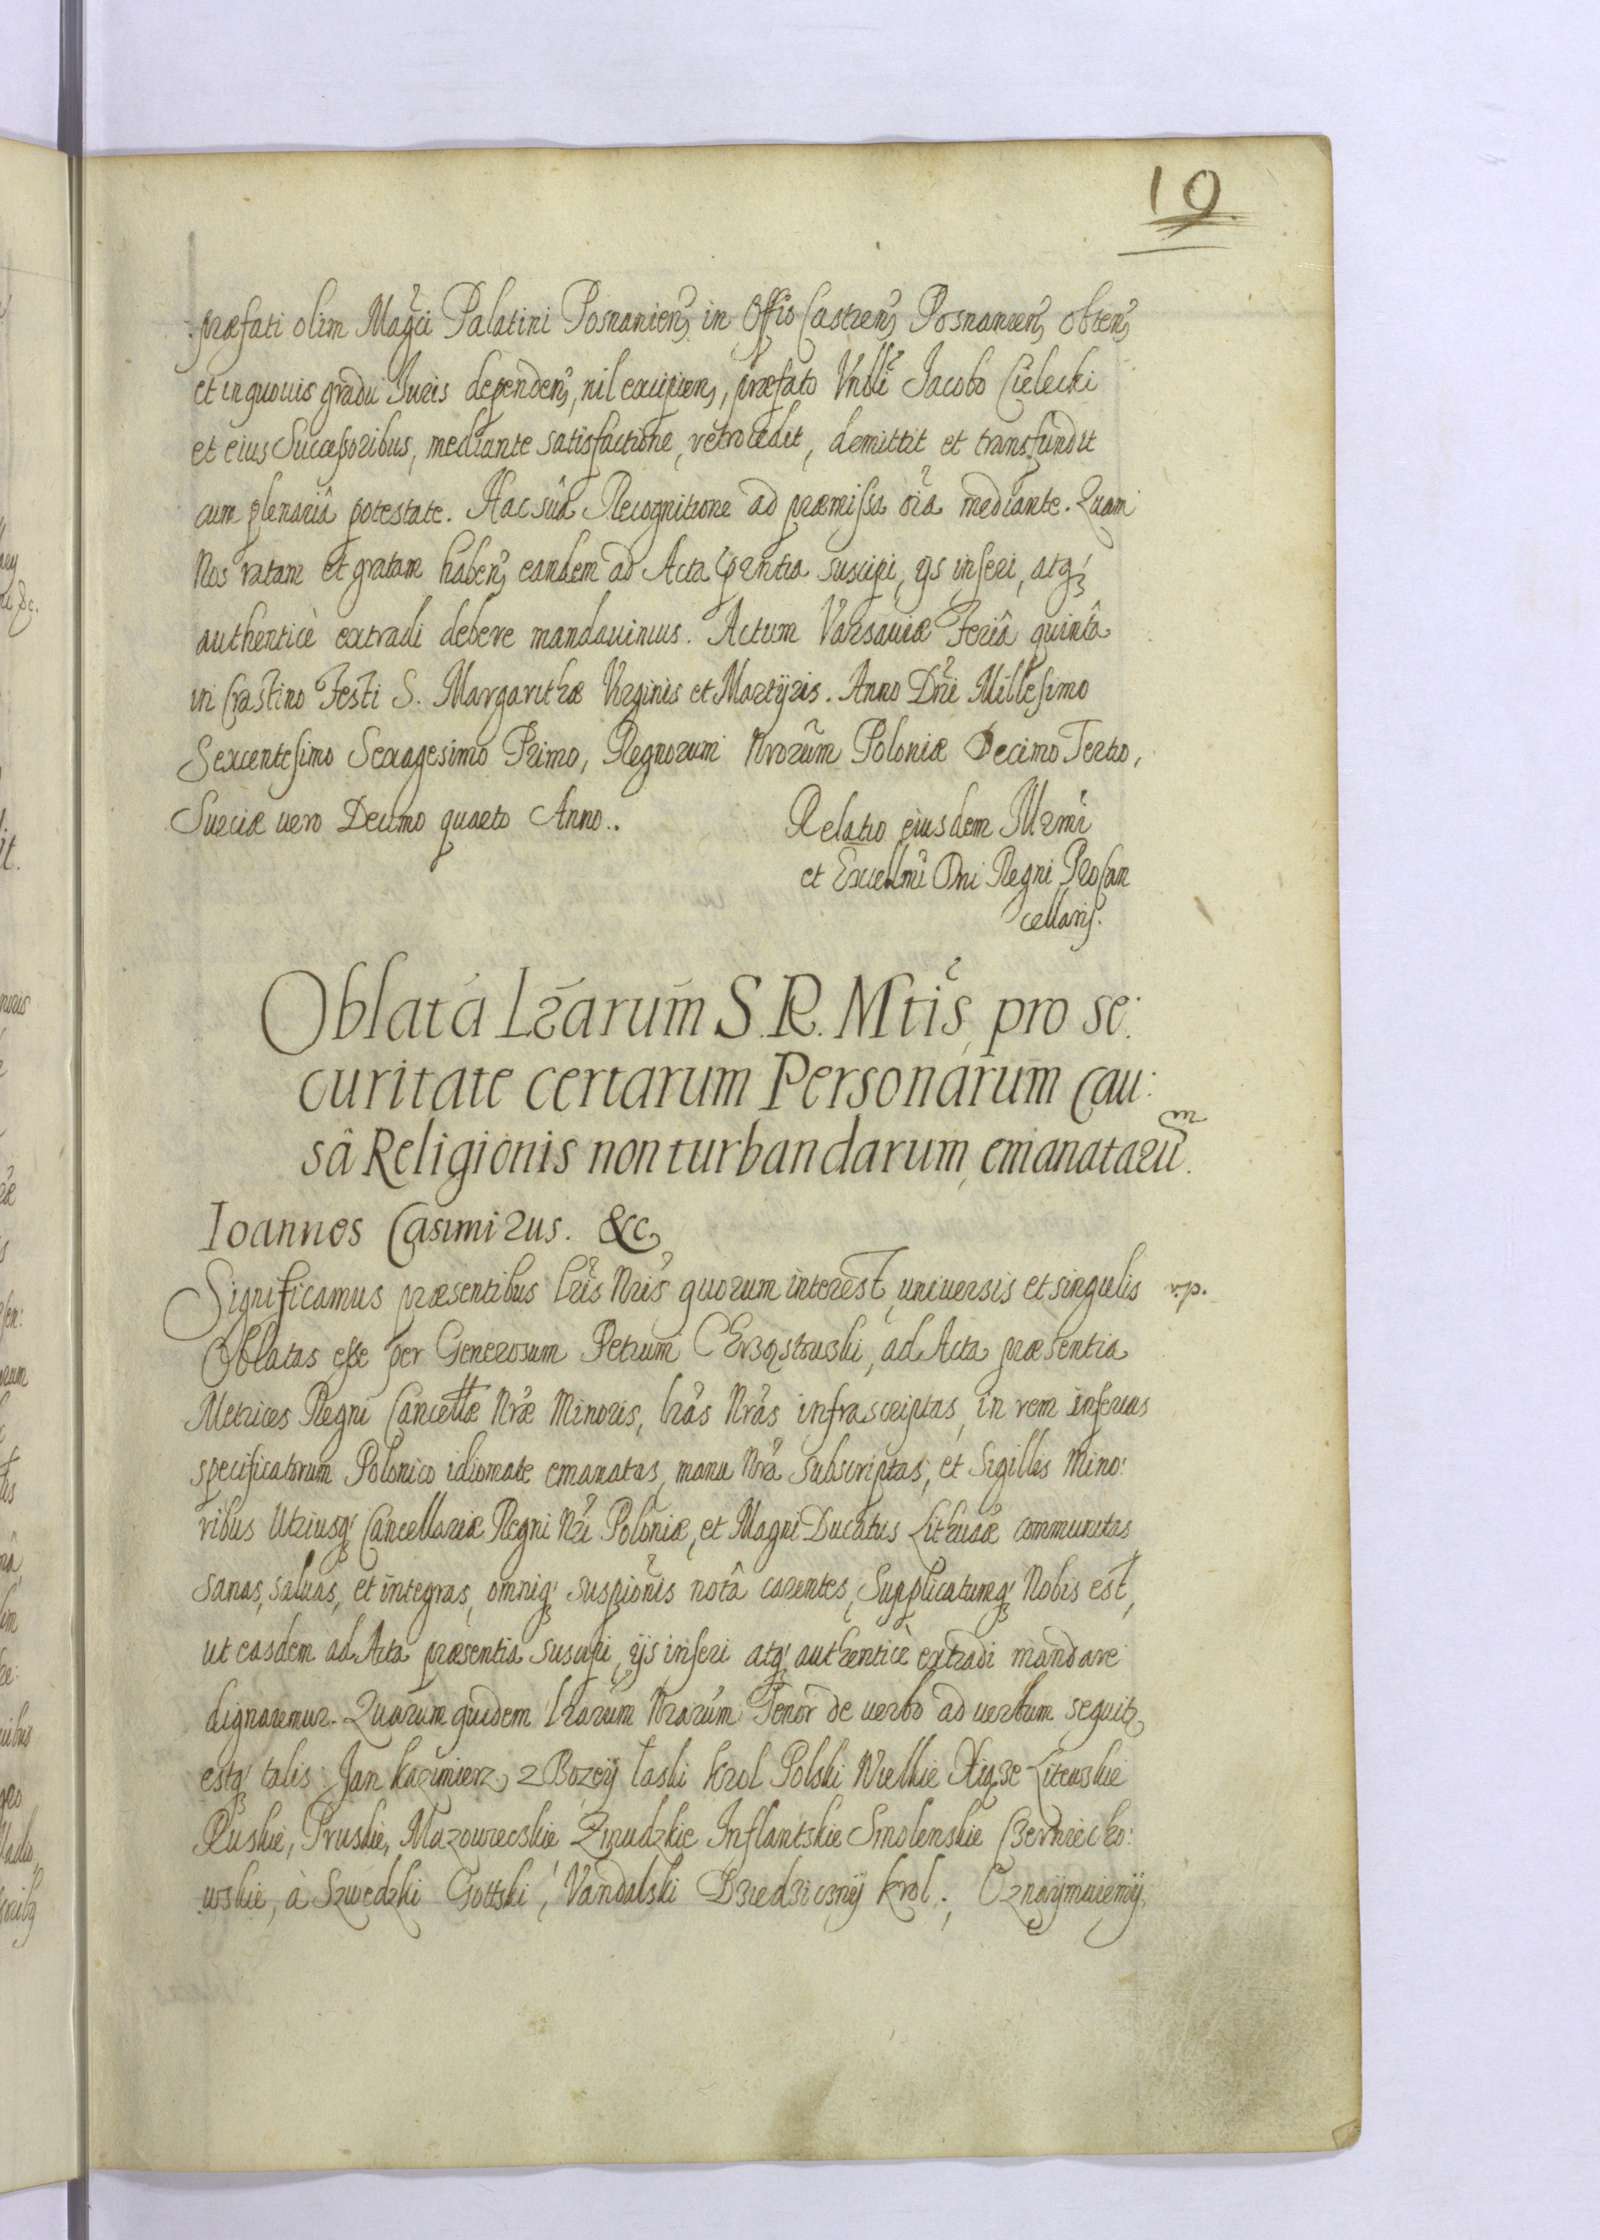 19
præfati olim Magci Palatini Posnanien, in Offio Castren, Posnanien, obten,
et in quouis gradu Iuris dependen, nil excipien, præfato Vrobli Jacobo Cielecki
et eius Successoribus, mediante satisfactione, retrocedit, demittit et transfundit
cum plenariâ potestate. Hac suâ Recognitione ad præmissa oia mediante. Quam
Nos ratam et gratam haben, eandem ad Acta prntia suscipi, ijs inseri, atq
authenticè extradi debere mandauimus. Actum Varsauiæ Feriâ quintâ
in Crastino Festi S. Margarithæ Virginis et Martijris. Anno Dni Millesimo
Sexcentesimo Sexagesimo Primo, Regnorum Nrorum Poloniæ Decimo Tertio,
Sueciæ uero Decimo quarto Anno..
Relatio eiusdem Illrmi
et Excellmi Dni Regni Procan
cellarij.
Oblata Lrarum S. R. Mtis, pro se:
curitate certarum Personarum cau:
sâ Religionis non turbandarum, emanatarum.
Ioannes Casimirus. &c
Significamus præsentibus lris Nris quorum interest, uniuersis et singulis
r.p.
Oblatas esse per Generosum Petrum, ad Acta præsentia
Metrices Regni Cancellæ Nræ Minoris, lras Nras infrascriptas, in rem inferius
specificatorum Polonico idiomate emanatas, manu Nra subscriptas, et Sigillis Mino:
ribus Utriusq Cancellariæ Regni Nri Poloniæ, et Magni Ducatus Lithuaæ communitas
sanas, saluas, et integras, omniq suspionis notâ carentes, Supplicatumq Nobis est,
ut easdem ad Acta præsentia suscipi, ijs inseri atq authenticè extradi mandare
dignaremur. Quarum quidem lrarum Nrarum Tenor de uerbo ad uerbum sequitr
estq talis. Jan Kazimierz, z Bozeÿ laski Krol Polski Wielkie Xiąze Litewskie
Ruskie, Pruskie, Mazowieckie Zmudzkie Inflantskie Smolenskie Czerniecho:
wskie, à Szwedzki Gottski, Vandalski Dziedziczny Krol., Oznaÿmuiemÿ